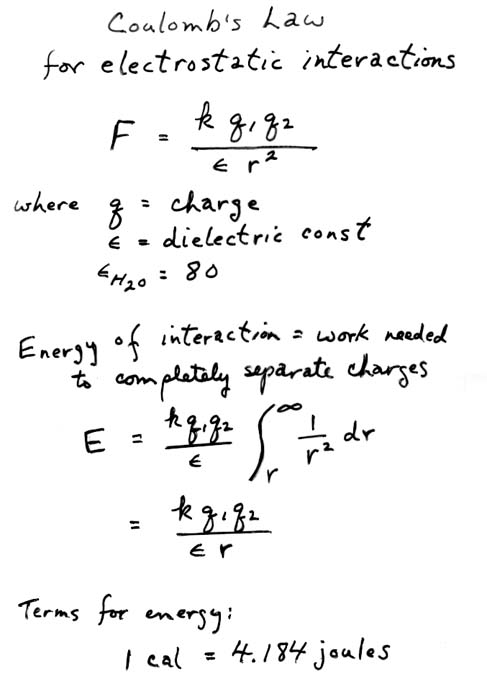 Coulomb's Law
for electrostatic interactions
F = k q₁q₂ / ε r²
where q = charge
ε = dielectric const
ε_H₂O = 80
Energy of interaction = work needed
to completely separate charges
E = k q₁q₂ / ε ∫_r^∞ 1/r² dr
= k q₁q₂ / ε r
Terms for energy:
1 cal = 4.184 joules